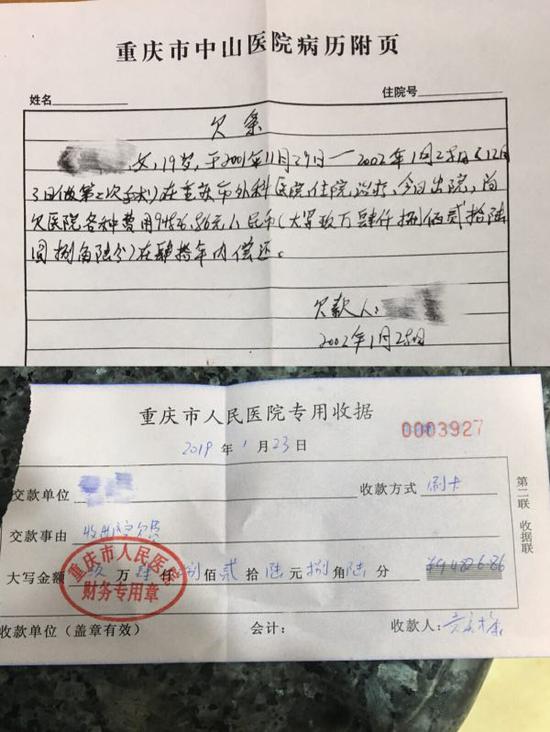 重庆市中山医院病历附页
姓名
住院号
欠条
女,19岁,于2001年11月29日—2002年1月25日(12月
3日做第二次手术)在重庆市外科医院住院治疗,今日出院,尚
欠医院各种费用94826.86元人民币(大写玖万肆仟捌佰贰拾陆
圆捌角陆分)在肆拾年内偿还。
欠款人:
2002年1月25日
重庆市人民医院专用收据
0003927
2019年1月23日
交款单位
收款方式 刷卡
交款事由
大写金额 玖万肆仟捌佰贰拾陆元捌角陆分 ¥94826.86
重庆市人民医院
财务专用章
收款单位(盖章有效) 会计: 收款人:
第二联 收据联